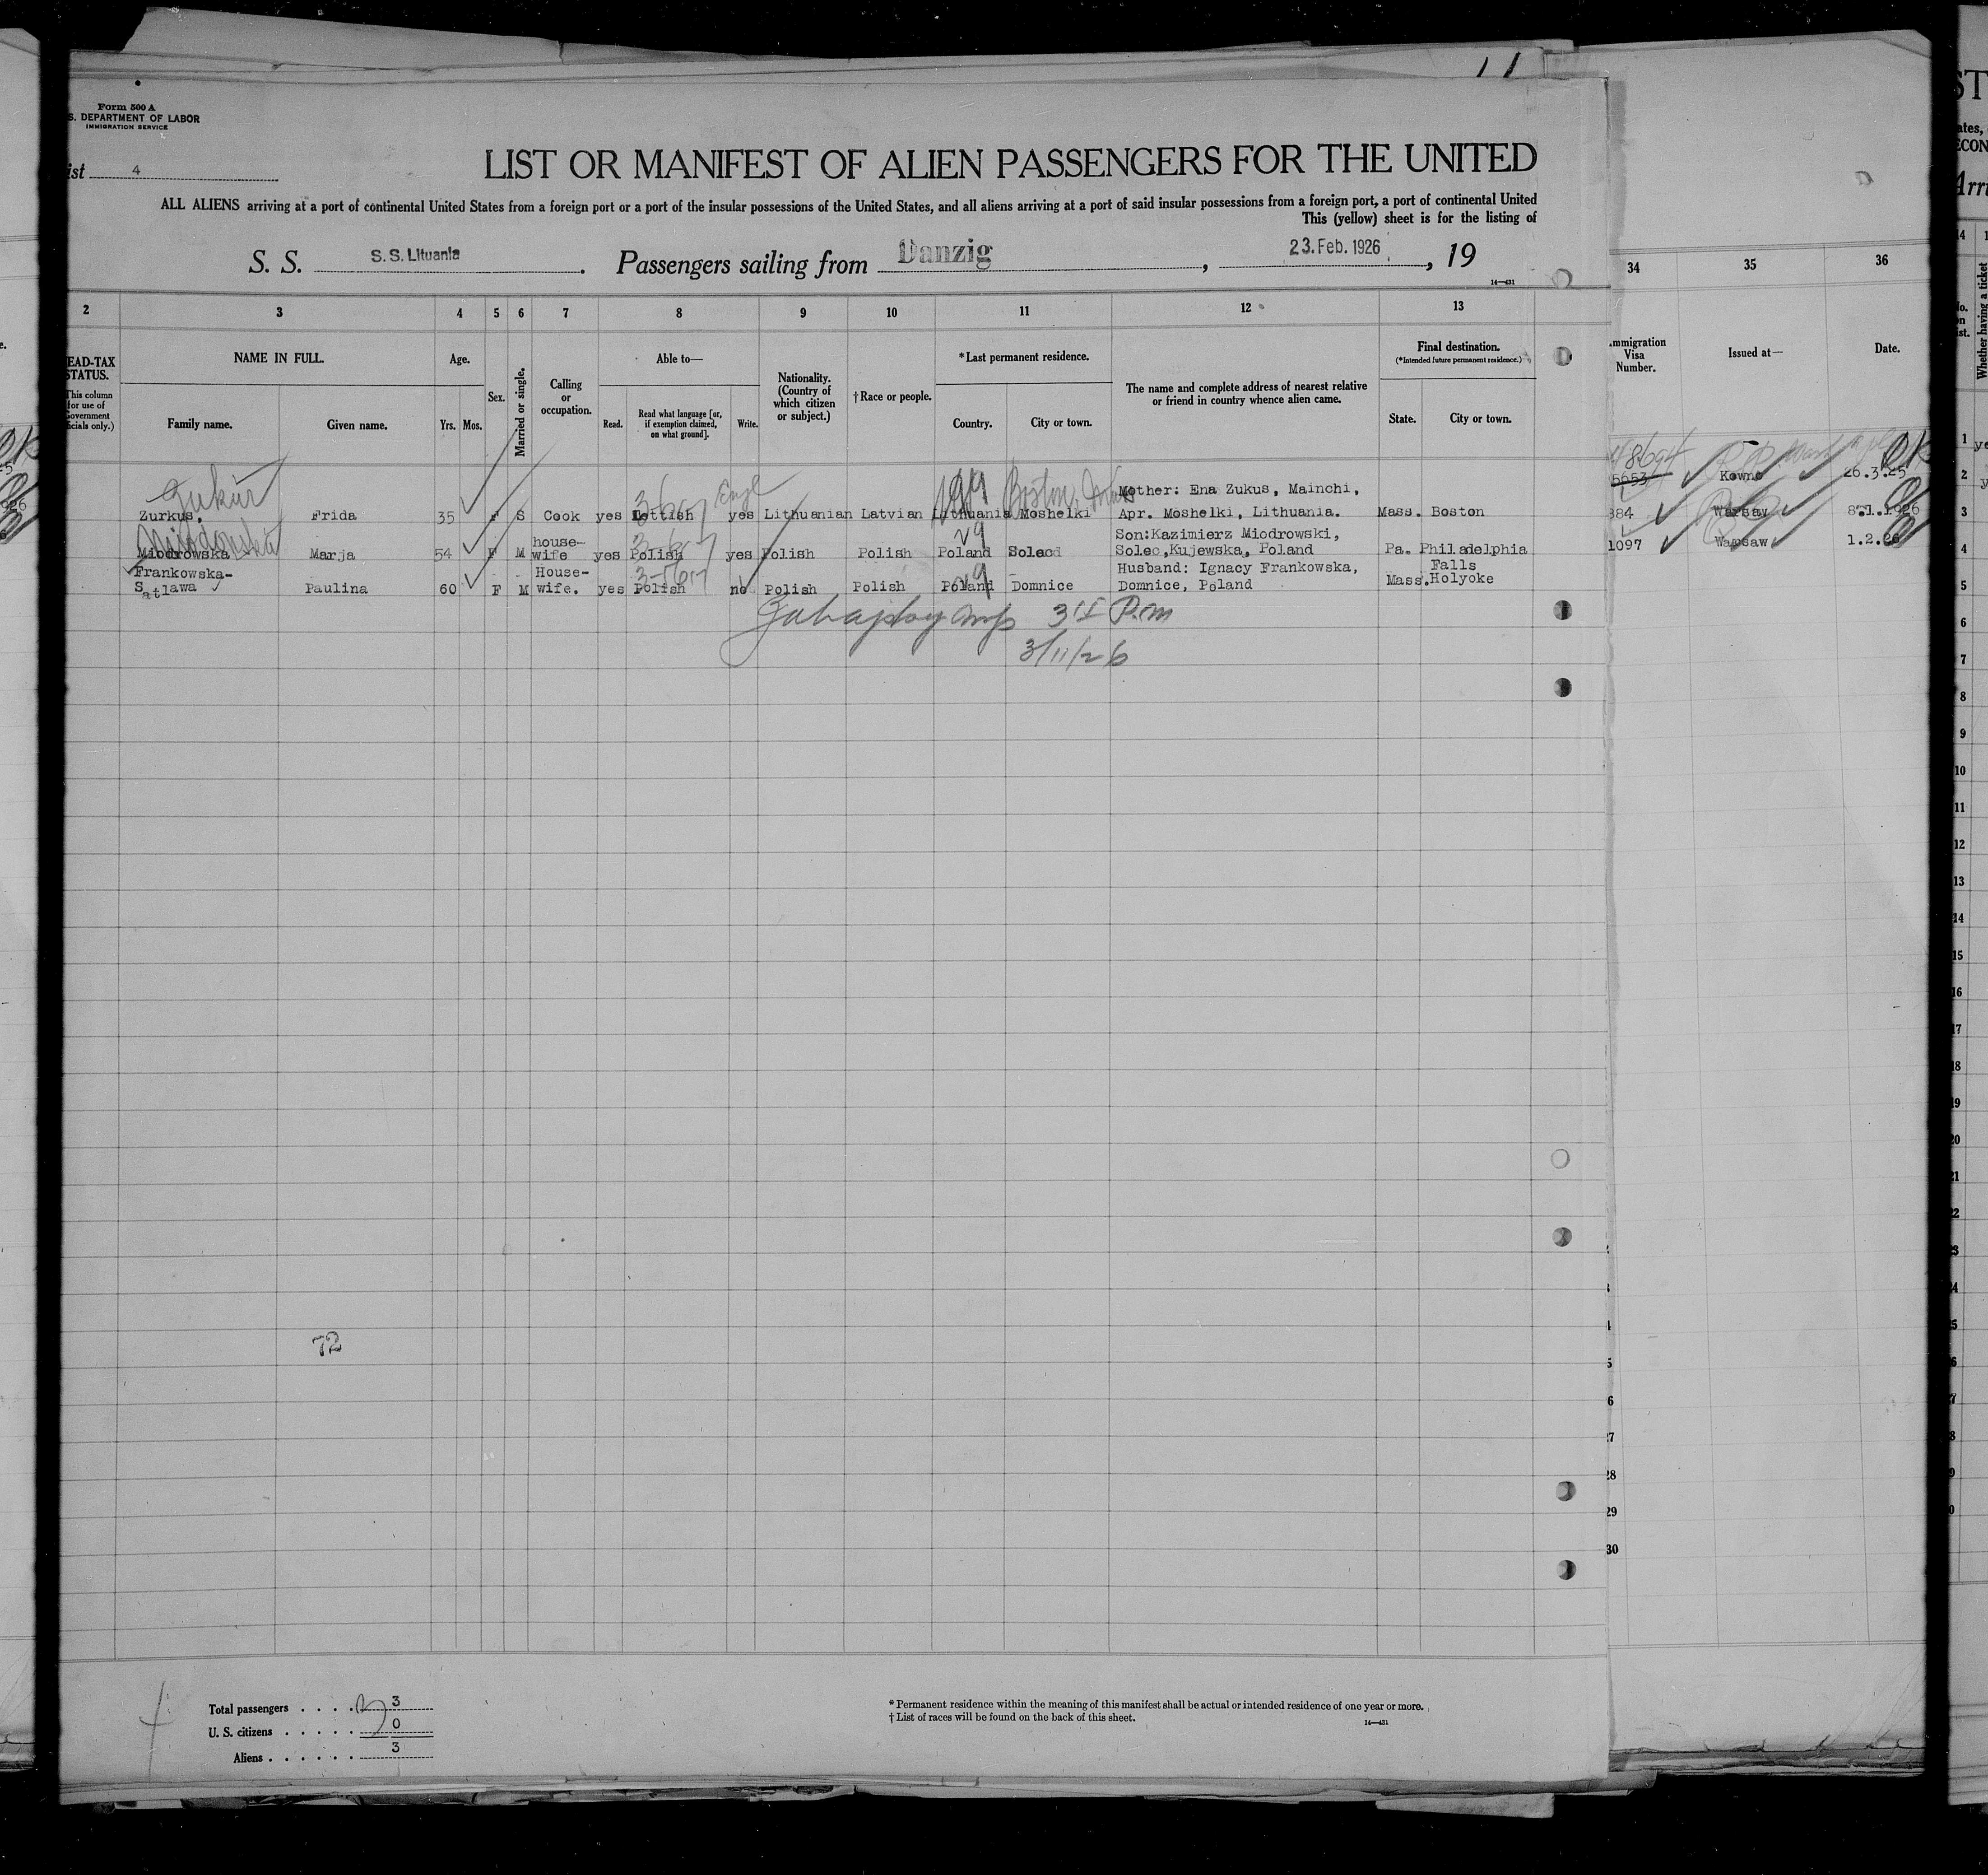 Form 500 A
S. DEPARTMENT OF LABOR
IMMIGRATION SERVICE
ist 4
LIST OR MANIFEST OF ALIEN PASSENGERS FOR THE UNITED
ALL ALIENS arriving at a port of continental United States from a foreign port or a port of the insular possessions of the United States, and all aliens arriving at a port of said insular possessions from a foreign port, a port of continental United
This (yellow) sheet is for the listing of
S. S. S.S. Lituania . Passengers sailing from Danzig , 23. Feb. 1926 , 19
14—431
2 3 4 5 6 7 8 9 10 11 12 13
EAD-TAX STATUS.
This column for use of Government ficials only.)
NAME IN FULL.
Family name. Given name.
Age.
Yrs. Mos.
Sex.
Married or single.
Calling or occupation.
Able to—
Read. Read what language [or, if exemption claimed, on what ground]. Write.
Nationality. (Country of which citizen or subject.)
† Race or people.
*Last permanent residence.
Country. City or town.
The name and complete address of nearest relative or friend in country whence alien came.
Final destination.
(*Intended future permanent residence.)
State. City or town.
Zukur
3-6-17 Engl
Boston
Mother: Ena Zukus, Mainchi,
Zurkus, Frida 35 F S Cook yes Lettish yes Lithuanian Latvian Lithuania Moshelki Apr. Moshelki, Lithuania. Mass. Boston
Miodrowska
house- 29 Son:Kazimierz Miodrowski,
Miodrowska Marja 54 F M wife yes Polish yes Polish Polish Poland Solec Solec,Kujewska, Poland Pa. Philadelphia
Frankowska- House- Husband: Ignacy Frankowska, Falls
Satlawa Paulina 60 F M wife. yes Polish no Polish Polish Poland Domnice Domnice, Poland Mass. Holyoke
P.m
3/11/26
72
Total passengers . . . . 3
U. S. citizens . . . . . 0
Aliens . . . . . . 3
* Permanent residence within the meaning of this manifest shall be actual or intended residence of one year or more.
† List of races will be found on the back of this sheet.
14—431
34 35 36
mmigration Visa Number.
Issued at—
Date.
8694
5653 Kowno 26.3.25
384 Warsaw 8.1.1926
1097 Warsaw 1.2.26
6
28
29
30
ST
ates,
ECON
Arri
14
Whether having a ticket
1 ye
2 y
3
4
5
6
7
8
9
10
11
12
13
14
15
16
17
18
19
20
21
22
23
24
25